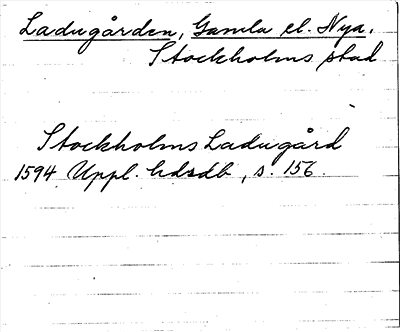 Ladugården, Gamla el. Nya.
Stockholms stad
Stockholms Ladugård
1594 Uppl. hdsdb, s. 156.